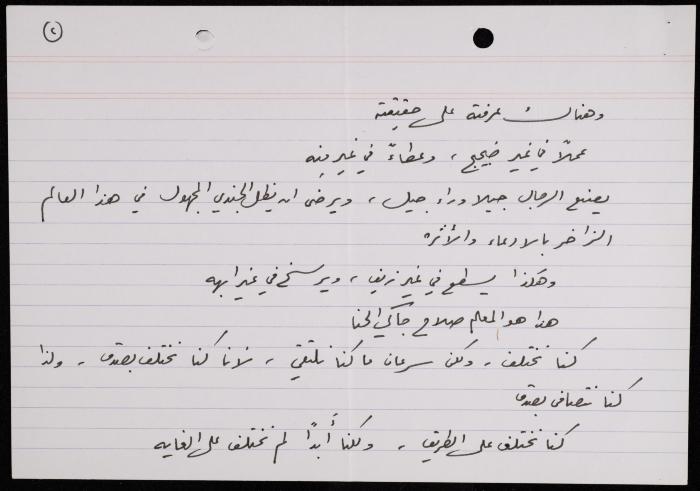 ٢
وهناك عرفته على حقيقته
عملاً في غير ضجيج ، وعطاءً في غير منه
يصنع الرجال جيلا وراء جيل ، ويرضى ان يظل الجندي المجهول في هذا العالم
الزاخر بالادعاء والأثره
وهكذا يسطع في غير زيف ، ويرسخ في غير ابهه
هذا هو المعلم صلاح جاكي الحنا
كنا نختلف ، ولكن سرعان ما كنا نلتقي ، لاننا كنا نختلف بصدق ، ولذا
كنا نتصافى بصدق
كنا نختلف على الطريق ، ولكنا أبدًا لم نختلف على الغايه